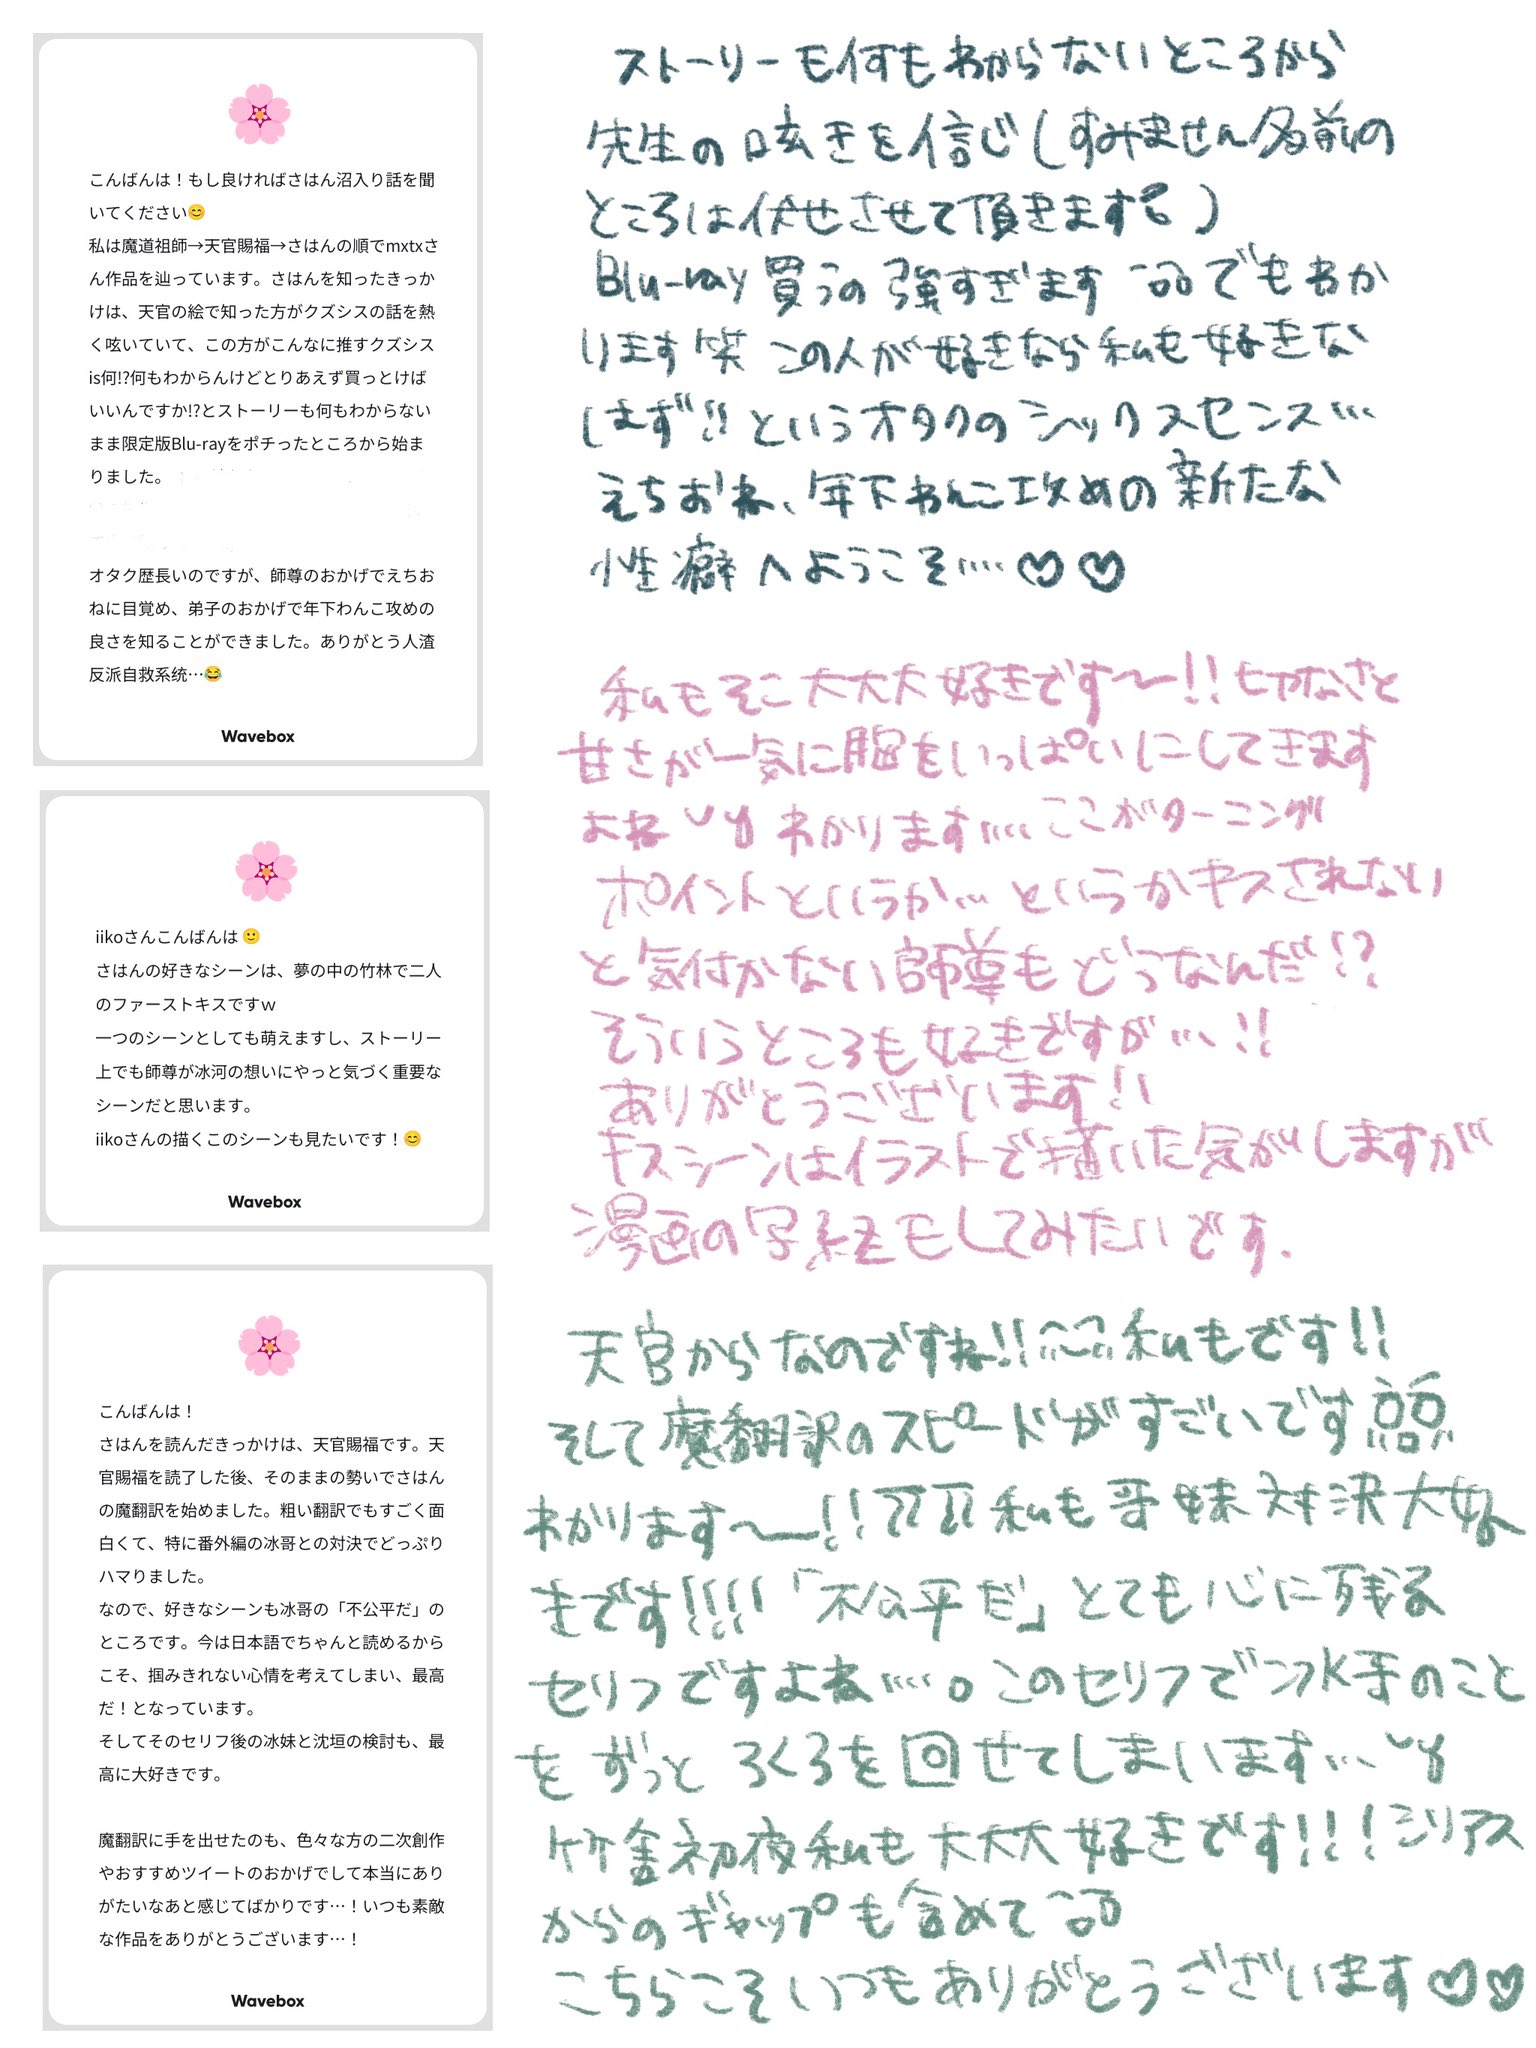 こんばんは！もし良ければさはん沼入り話を聞
いてください😊
私は魔道祖師→天官賜福→さはんの順でmxtxさ
ん作品を辿っています。さはんを知ったきっか
けは、天官の絵で知った方がクズシスの話を熱
く呟いていて、この方がこんなに推すクズシス
is何!?何もわからんけどとりあえず買っとけば
いいんですか!?とストーリーも何もわからない
まま限定版Blu-rayをポチったところから始ま
りました。
オタク歴長いのですが、師尊のおかげでえちお
ねに目覚め、弟子のおかげで年下わんこ攻めの
良さを知ることができました。ありがとう人渣
反派自救系统…😂
Wavebox
ストーリーも何もわからないところから
先生の呟きを信じ(すみません名前の
ところは伏せさせて頂きます)
Blu-ray買うの強すぎます でもわか
ります笑 この人が好きなら私も好きな
はず!! というオタクのシックスセンス…
えちおね、年下わんこ攻めの新たな
性癖へようこそ….♡♡
iikoさんこんばんは🙂
さはんの好きなシーンは、夢の中の竹林で二人
のファーストキスですｗ
一つのシーンとしても萌えますし、ストーリー
上でも師尊が冰河の想いにやっと気づく重要な
シーンだと思います。
iikoさんの描くこのシーンも見たいです！😊
Wavebox
私もそこ大大大好きです〜!! せつなさと
甘さが一気に胸をいっぱいにしてきます
よね わかります…. ここがターニング
ポイントというか… というかキスされない
と気付かない師尊もどうなんだ!?
そういうところも好きですが…!!
ありがとうございます!!
キスシーンはイラストで描いた気がしますが
漫画の写経もしてみたいです.
こんばんは！
さはんを読んだきっかけは、天官賜福です。天
官賜福を読了した後、そのままの勢いでさはん
の魔翻訳を始めました。粗い翻訳でもすごく面
白くて、特に番外編の冰哥との対決でどっぷり
ハマりました。
なので、好きなシーンも冰哥の「不公平だ」の
ところです。今は日本語でちゃんと読めるから
こそ、掴みきれない心情を考えてしまい、最高
だ！となっています。
そしてそのセリフ後の冰妹と沈垣の検討も、最
高に大好きです。
魔翻訳に手を出せたのも、色々な方の二次創作
やおすすめツイートのおかげでして本当にあり
がたいなあと感じてばかりです…！いつも素敵
な作品をありがとうございます…！
Wavebox
天官からなのですね!! 私もです!!
そして魔翻訳のスピードがすごいです
わかります〜!! 私も哥妹対決大好
きです!!!! 「不公平だ」とても心に残る
セリフですよね….。このセリフで冰哥のこと
を ずっと ろくろを回せてしまいます…
竹舎初夜私も大大大好きです!!! シリアス
からのギャップも含めて
こちらこそいつもありがとうございます♡♡